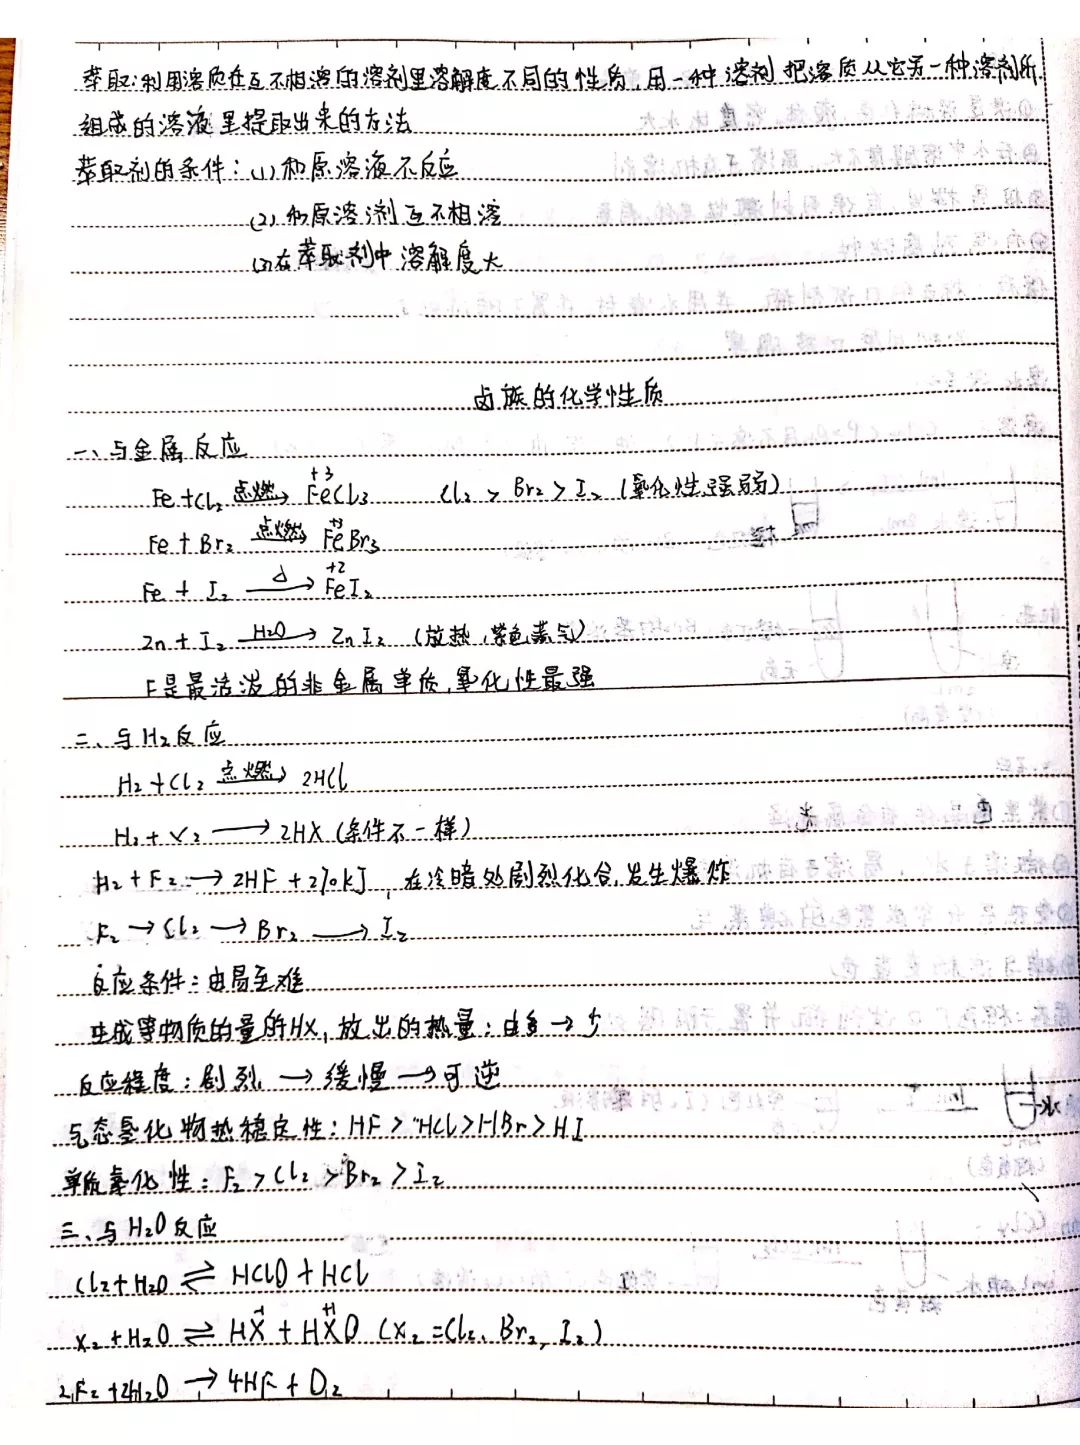 萃取:利用溶质在互不相溶的溶剂里溶解度不同的性质,用一种溶剂把溶质从它另一种溶剂所
组成的溶液里提取出来的方法
萃取剂的条件:(1)和原溶液不反应
(2)和原溶剂互不相溶
(3)在萃取剂中溶解度大
卤族的化学性质
一、与金属反应
Fe+Cl₂ 点燃→ +3 FeCl₃ Cl₂ > Br₂ > I₂ (氧化性强弱)
Fe + Br₂ 点燃→ +3 FeBr₃
Fe + I₂ Δ→ +2 FeI₂
Zn + I₂ H₂O→ ZnI₂ (放热,紫色蒸气)
F是最活泼的非金属单质,氧化性最强
二、与H₂反应
H₂+Cl₂ 点燃→ 2HCl
H₂+X₂ → 2HX (条件不一样)
H₂+F₂ → 2HF+270kJ,在冷暗处剧烈化合,发生爆炸
F₂ → Cl₂ → Br₂ → I₂
反应条件:由易至难
生成等物质的量的HX,放出的热量:由多→少
反应程度:剧烈→缓慢→可逆
气态氢化物热稳定性:HF>HCl>HBr>HI
单质氧化性:F₂>Cl₂>Br₂>I₂
三、与H₂O反应
Cl₂+H₂O ⇌ HClO+HCl
X₂+H₂O ⇌ HX -1 + HXO +1 (X₂=Cl₂、Br₂、I₂)
2F₂+2H₂O → 4HF+O₂